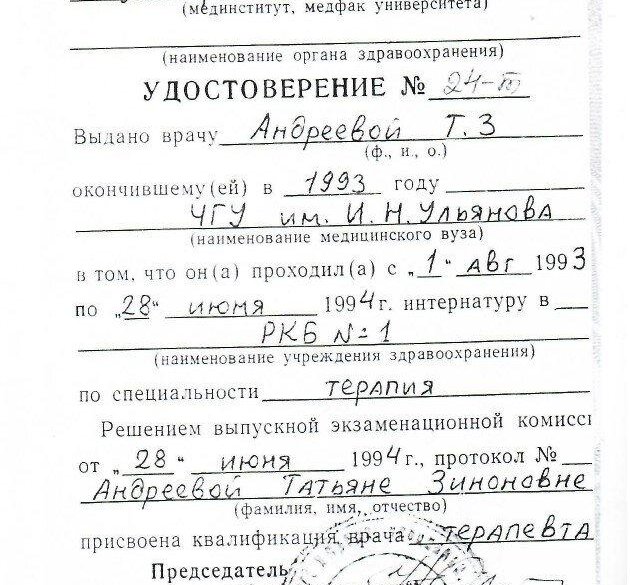 (мединститут, медфак университета)
(наименование органа здравоохранения)
УДОСТОВЕРЕНИЕ № 24-
Выдано врачу Андреевой Т. З
(ф., и., о.)
окончившему(ей) в 1993 году
ЧГУ им. И. Н. Ульянова
(наименование медицинского вуза)
в том, что он(а) проходил(а) с „1“ авг 1993
по „28“ июня 1994г. интернатуру в
РКБ N=1
(наименование учреждения здравоохранения)
по специальности терапия
Решением выпускной экзаменационной комисси
от „28“ июня 1994г., протокол №
Андреевой Татьяне Зиноновне
(фамилия, имя, отчество)
присвоена квалификация врача-терапевта
Председатель